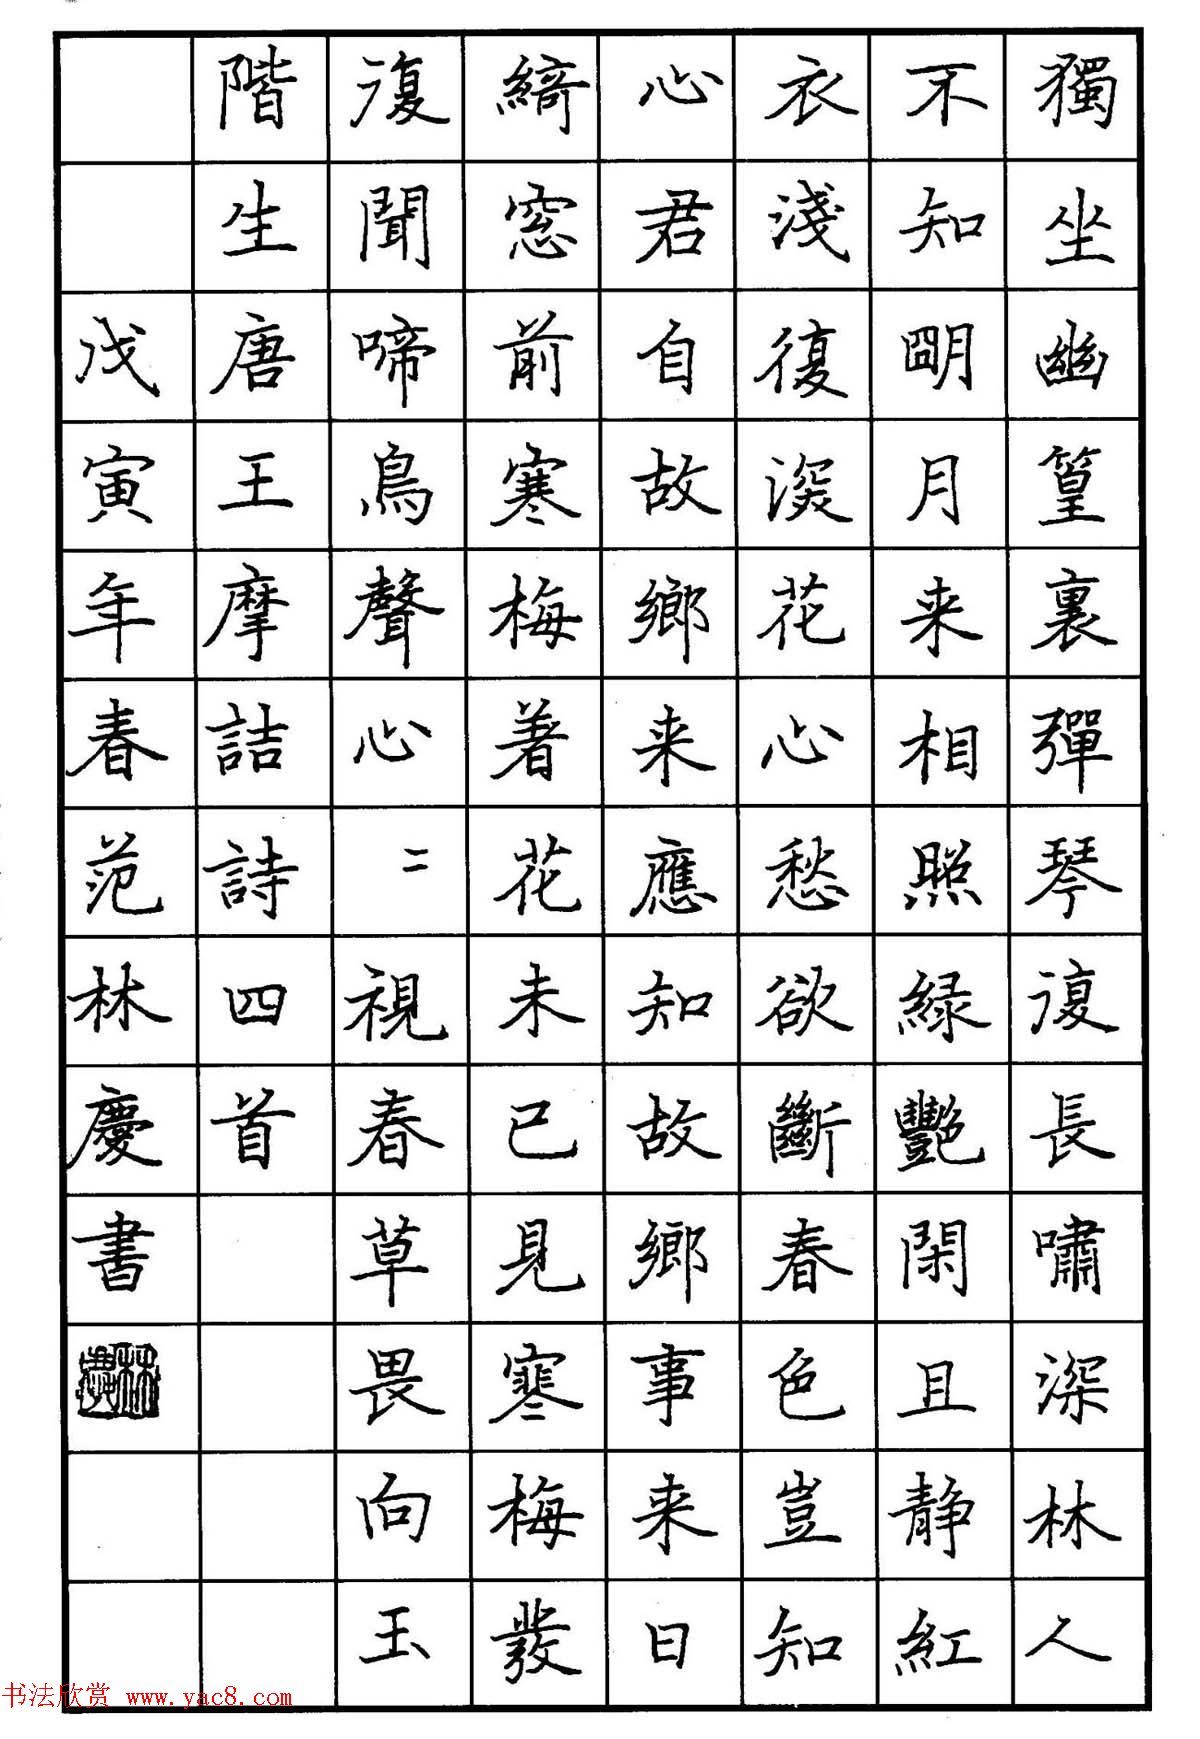 獨坐幽篁裏彈琴復長嘯深林人
不知朙月来相照緑艷閑且静紅
衣淺復深花心愁欲斷春色豈知
心君自故鄉来應知故鄉事来日
綺窓前寒梅著花未已見寒梅發
復聞啼鳥聲心二視春草畏向玉
階生唐王摩詰詩四首
戊寅年春范林慶書
林慶
书法欣赏 www.yac8.com